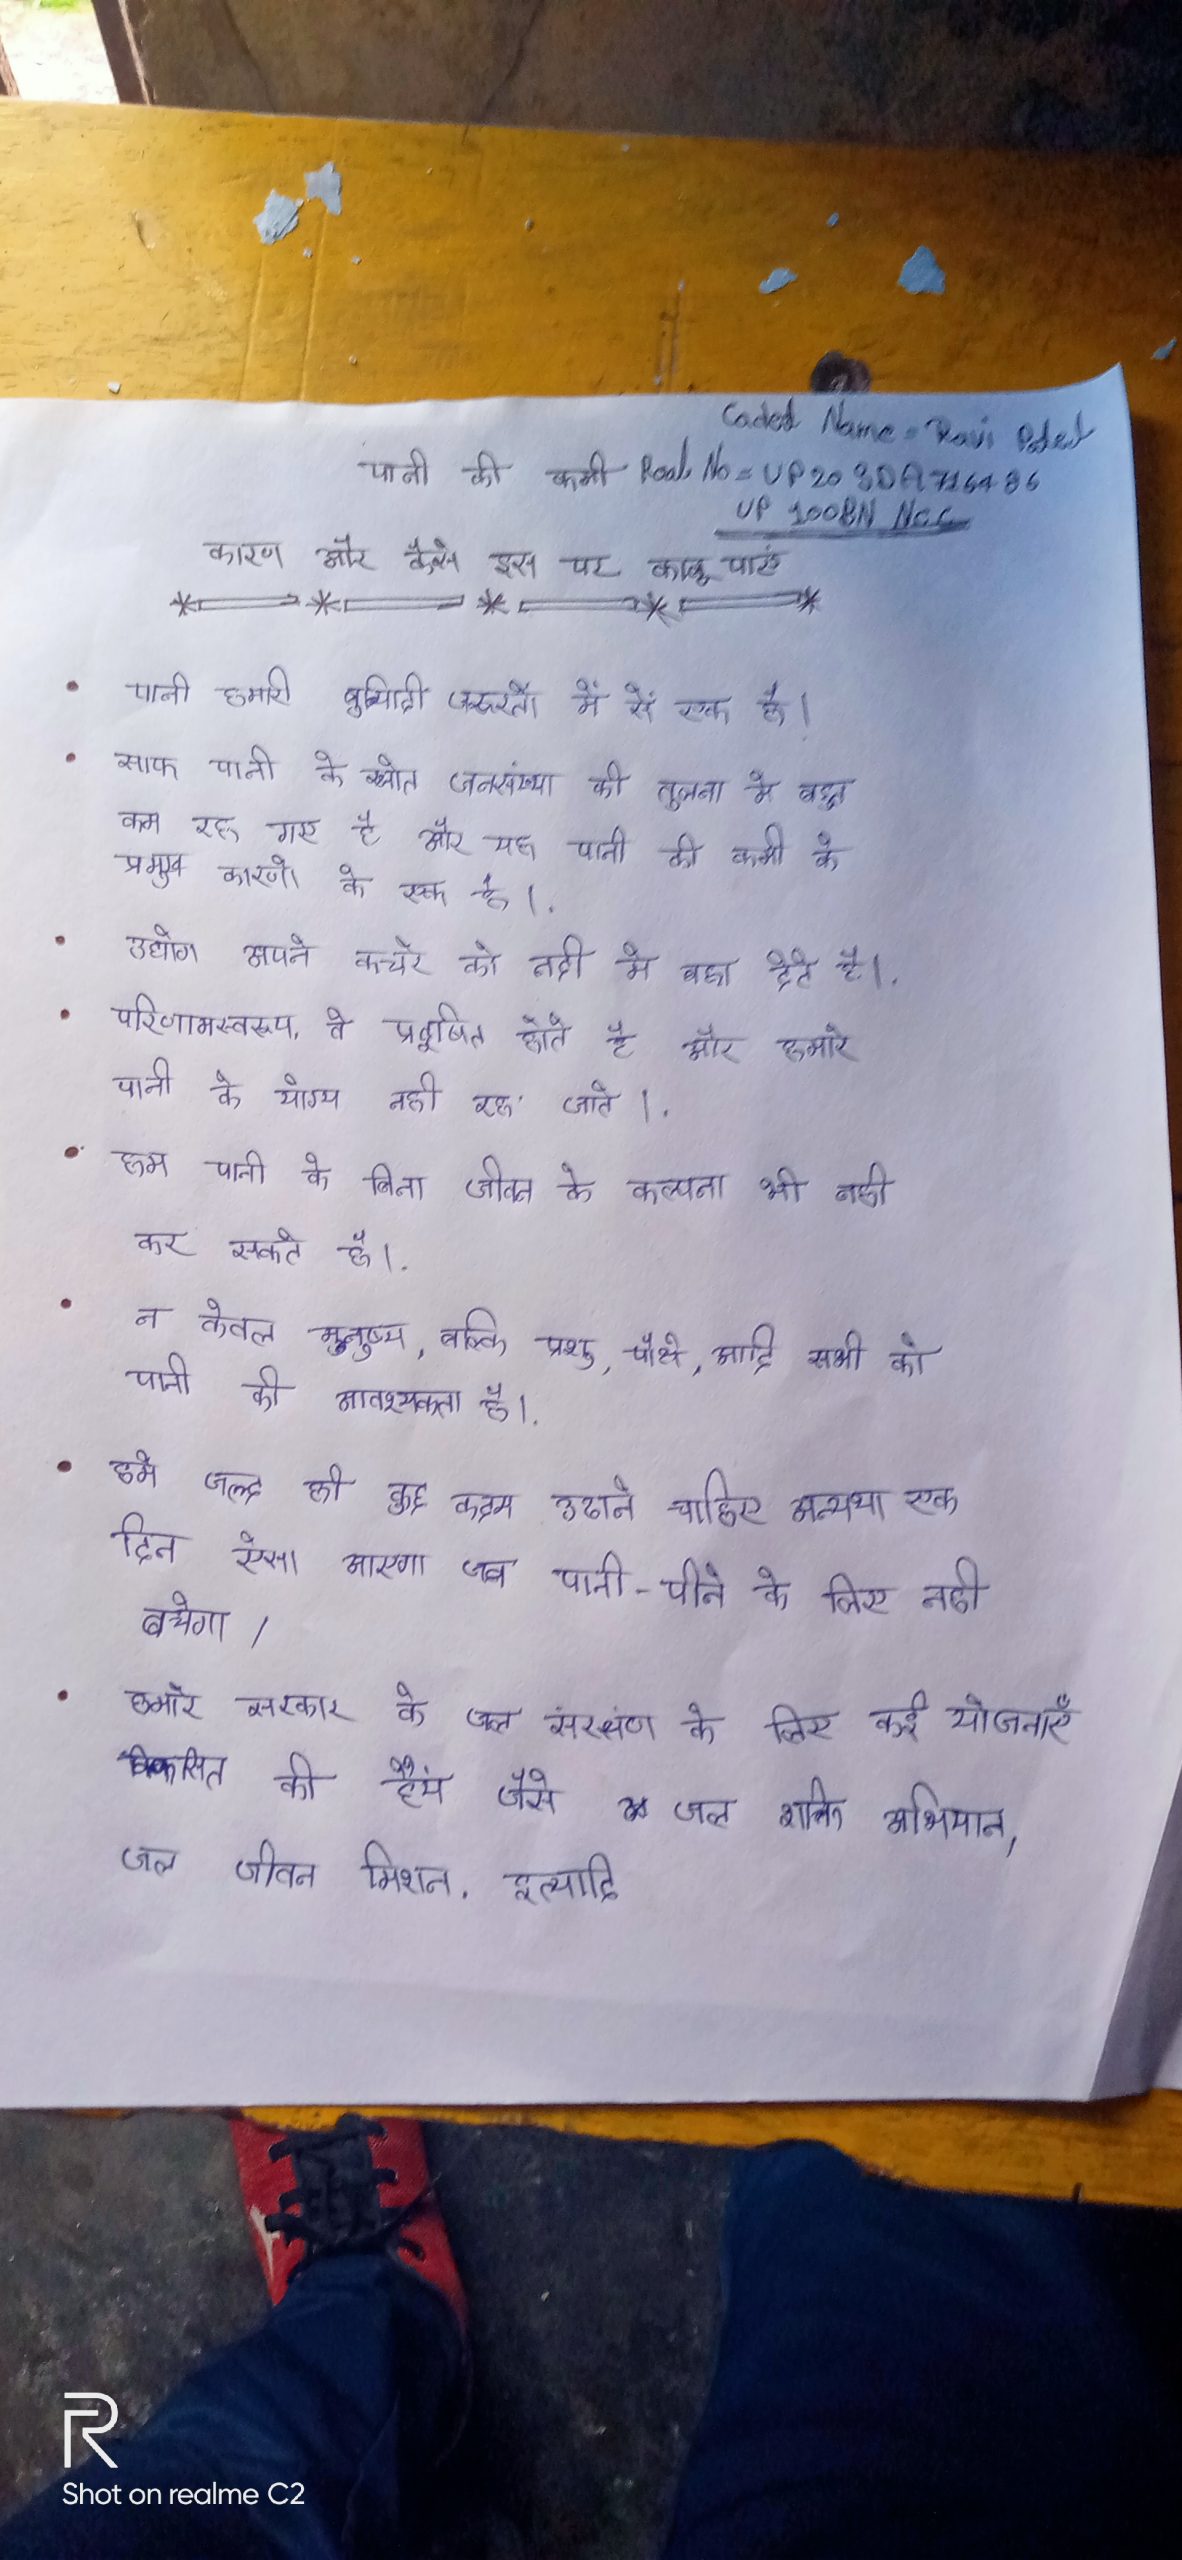 Caded Name = Ravi Patel
पानी की कमी Roal No = UP20 SDA 716486
UP 100BN Ncc
कारण और कैसे इस पर काबू पाएं
• पानी हमारी बुनियादी जरूरतों में सें एक है।
• साफ पानी के स्रोत जनसंख्या की तुलना मे बहुत
कम रह गए है और यह पानी की कमी के
प्रमुख कारणों के एक है।.
• उद्योग अपने कचरे को नदी मे बहा देते है।.
• परिणामस्वरूप, वे प्रदूषित होते है और हमारे
पानी के योग्य नही रह जाते।.
• हम पानी के बिना जीवन के कल्पना भी नही
कर सकते है।.
• न केवल मुनुष्य, बल्कि प्रशु, पौधे, आदि सभी को
पानी की आवश्यकता है।.
• हमे जल्द ही कुछ कदम उठाने चाहिए अन्यथा एक
दिन ऐसा आएगा जब पानी-पीने के लिए नही
बचेगा।
• हमारे सरकार के जल संरक्षंण के लिए कई योजनाएँ
विकसित की जैसे जल शक्ति अभियान,
जल जीवन मिशन. इत्यादि
Shot on realme C2